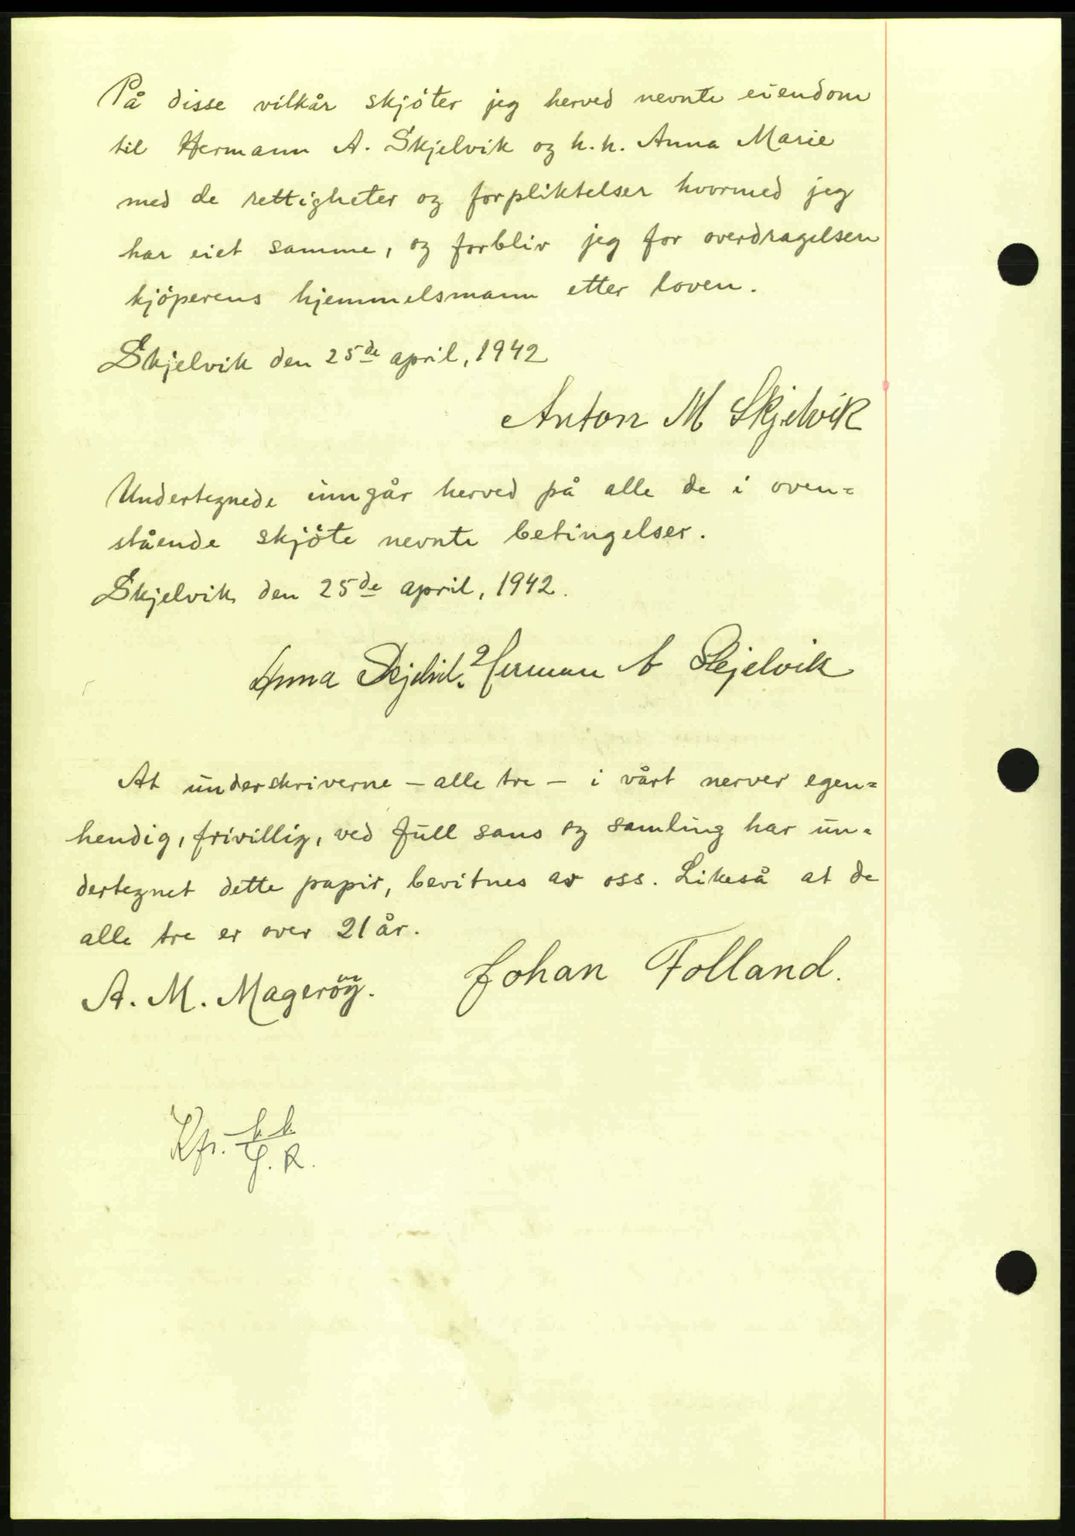 På disse vilkår skjöter jeg herved nevnte eiendom
til Hermann A. Skjelvik og h.h. Anna Marie
med de rettigheter og forpliktelser hvormed jeg
har eiet samme, og forbliv jeg for overdragelsen
kjöperens hjemmelsmann etter loven.
Skjelvik den 25de april, 1942
Anton M Skjelvik
Undertegnede inngår herved på alle de i oven=
stående skjöte nevnte betingelser.
Skjelvik den 25de april, 1942.
Anna Skjelvik. Herman A Skjelvik
At underskriverne - alle tre - i vårt nerver egen=
hendig, frivillig, ved full sans og samling har un=
dertegnet dette papir, bevitnes av oss. Likeså at de
alle tre er over 21 år.
A. M. Mageröy. Johan Folland.
Kfr.